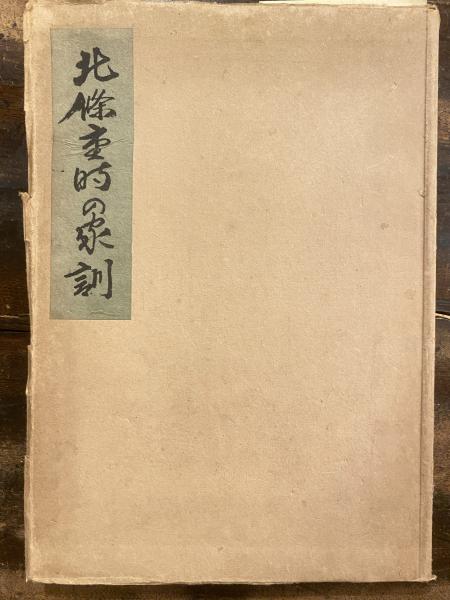 北條重時の家訓